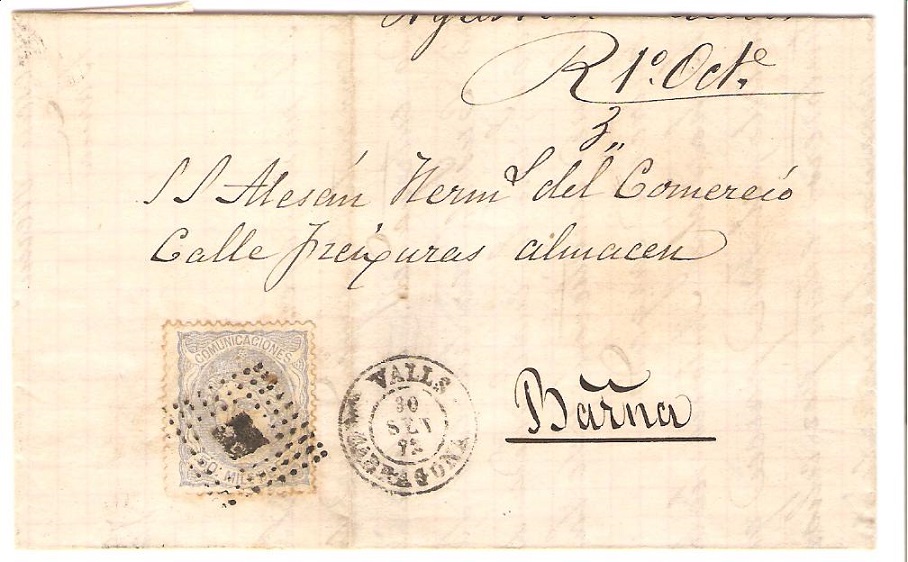 R 1º. Octe.
3,,
SS Alesán Hermˢ del Comercio
Calle Freixuras almacen
COMUNICACIONES
VALLS
30
SET
72
TARRAGONA
Barña
50. MILS